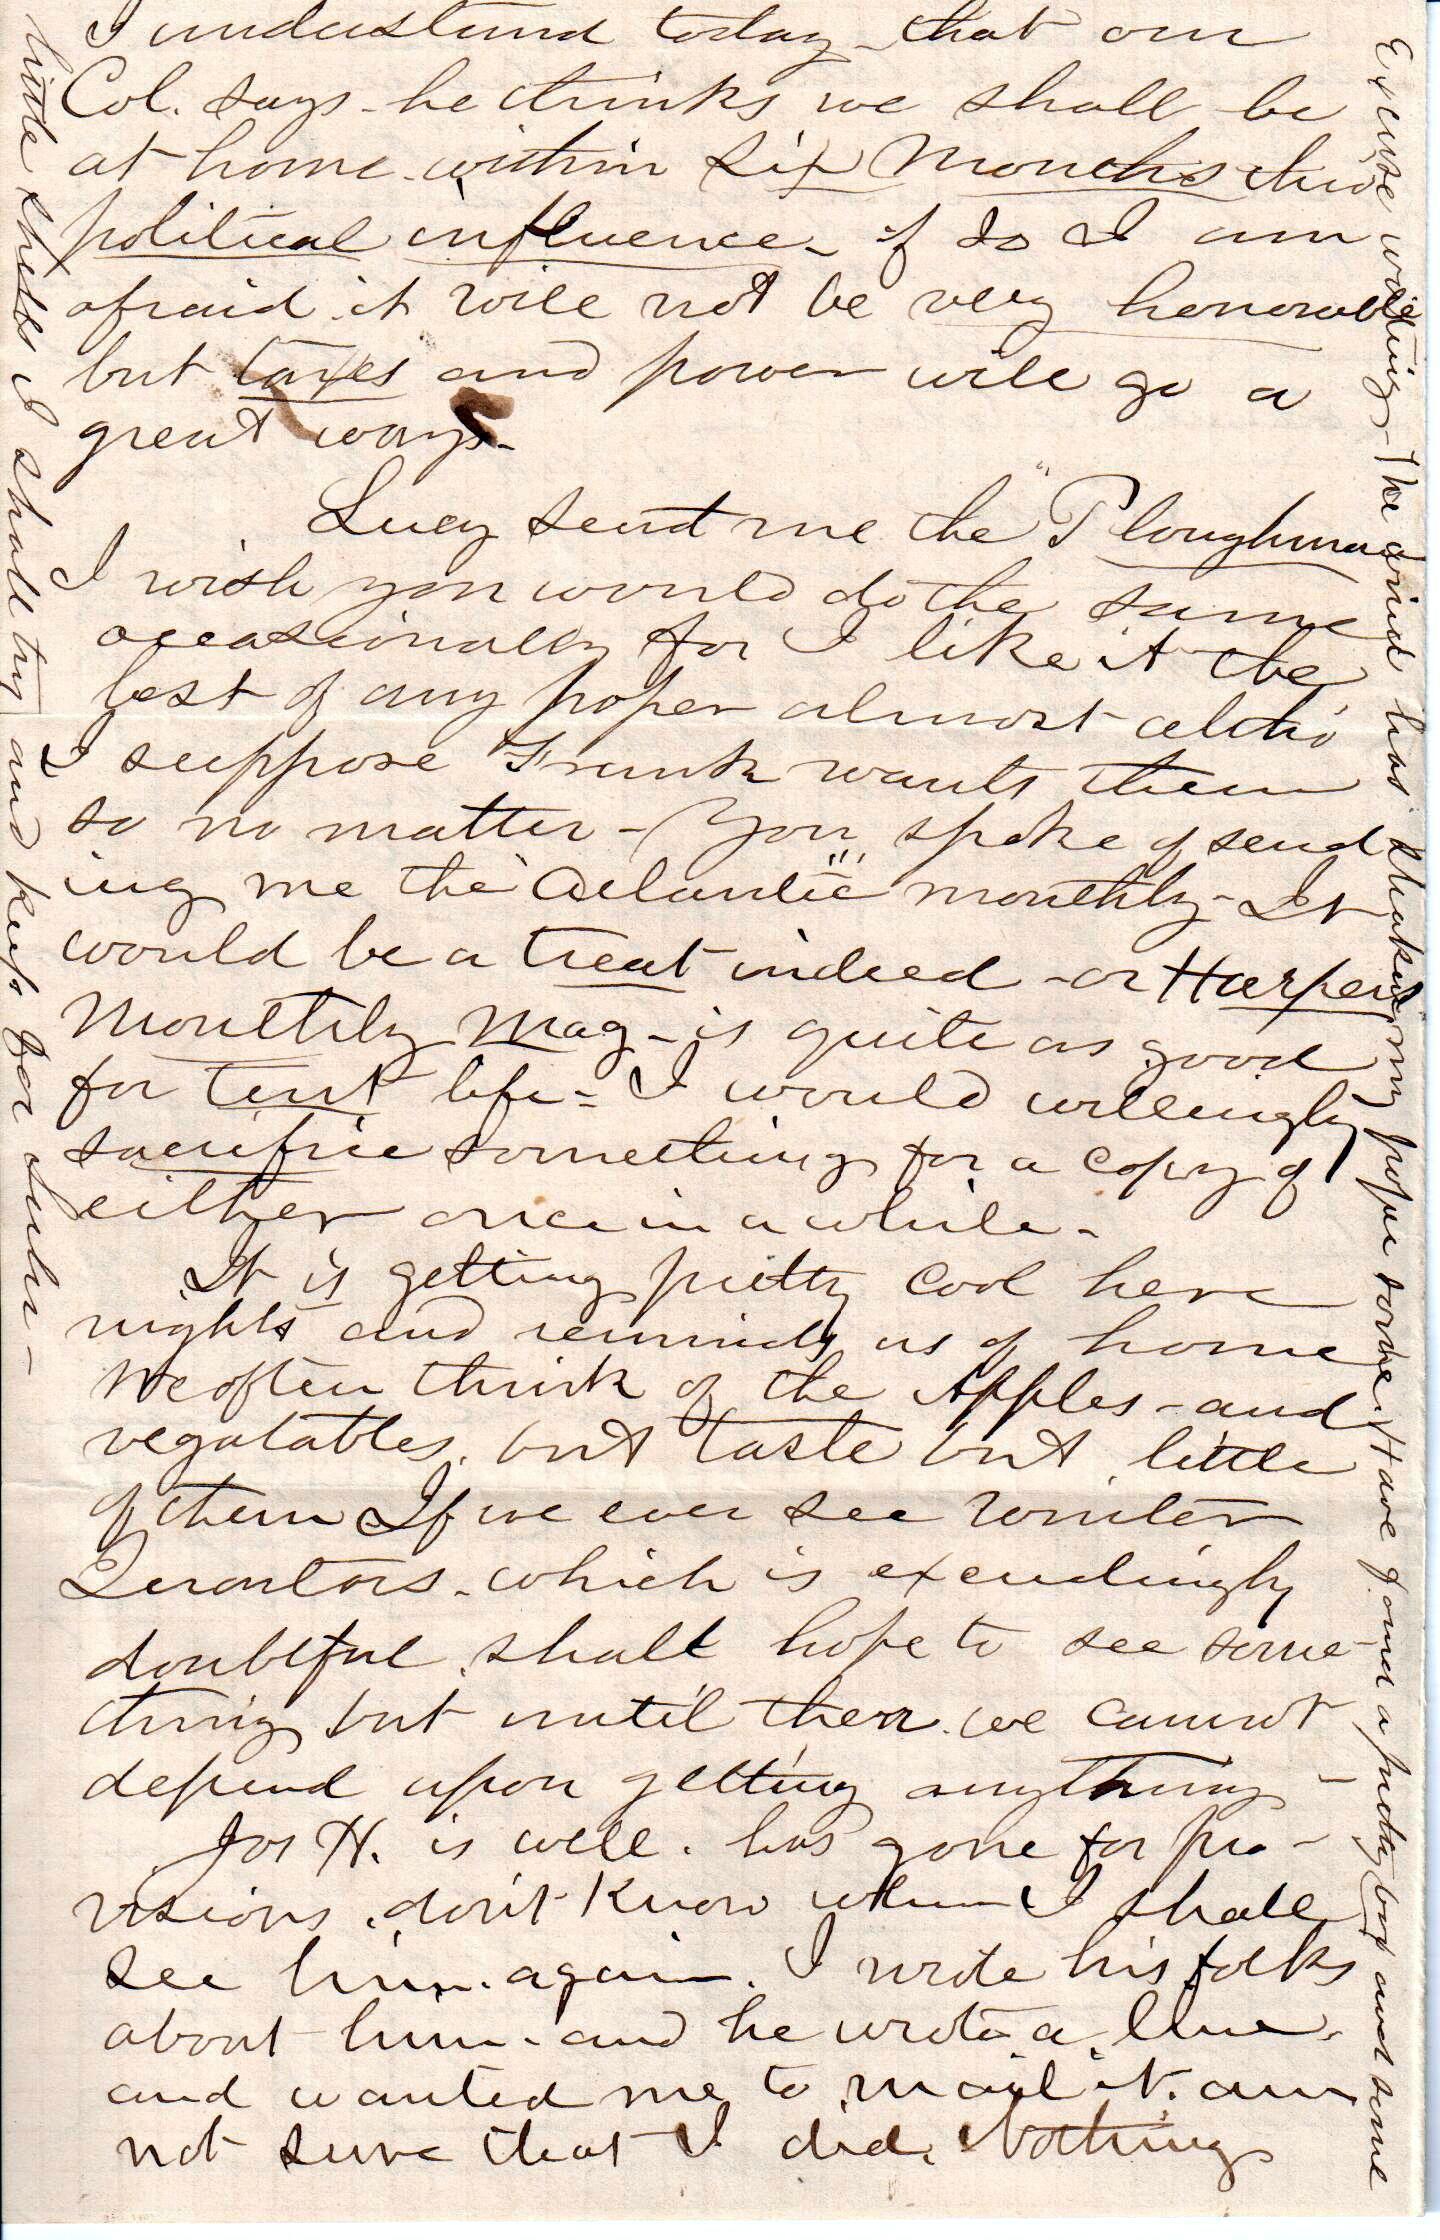 I understand today - that our
Col. says - he thinks we shall be
at home within six Months thro'
political influence - if so I am
afraid it will not be very honorable
but taxes and power will go a
great ways -
Lucy sent me the "Ploughman
I wish you would do the same
occasionally for I like it the
best of any paper almost altho'
I suppose Frank wants them
so no matter - You spoke of send
ing me the Atlantic monthly - It
would be a treat indeed - or Harpers
Monthly Mag - is quite as good
for tent life - I would willingly
sacrifice something for a copy of
either once in a while -
It is getting pretty cool here
nights and reminds us of home
We often think of the Apples - and
vegatables. but taste but little
of them If we ever see Winter
Quartors - which is exceedingly
doubtful. shall hope to see some-
thing but until then we cannot
depend upon getting anything -
Jos H. is well. has gone for pro-
visions. don't know when I shall
see him again. I wrote his folks
about him - and he wrote a line.
and wanted me to mail it. am
not sure that I did. Nothing
Excuse writing - The wind has shaken my paper some. Have found a pretty box and some
little shells I shall try and keep for Lulu -